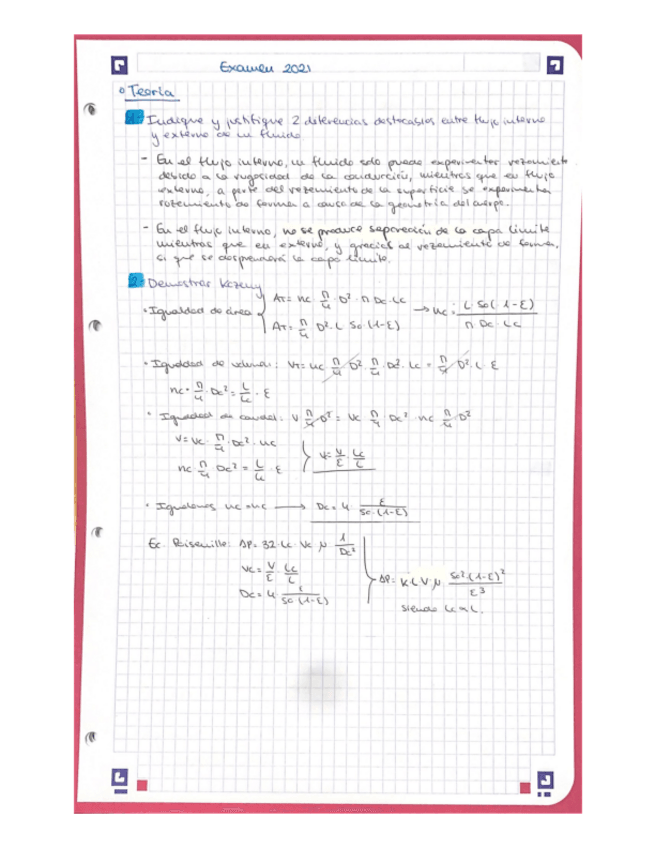 Examen 2021
Teoría
1- Indique y justifique 2 diferencias destacables entre flujo interno
y externo de un fluido
- En el flujo interno, un fluido solo puede experimentar rozamiento
debido a la rugosidad de la conducción, mientras que en flujo
externo, a parte del rozamiento de la superficie se experimenta
rozamiento de forma a causa de la geometría del cuerpo.
- En el flujo interno, no se produce separación de la capa límite
mientras que en externo, y gracias al rozamiento de forma,
si que se desprenderá la capa límite.
2- Demostrar Kozeny
· Igualdad de área { AT = nc · π/4 · D² · π Dc · Lc
AT = π/4 D² · L So (1-ε) → nc = L · So (1-ε) / π Dc · Lc
· Igualdad de volumen: VT = nc π/4 D² · π/4 · Dc² · Lc = π/4 D² · L · ε
nc · π/4 Dc² = L/Lc · ε
· Igualdad de caudal: V π/4 D² = Vc π/4 · Dc² · nc π/4 D²
V = Vc · π/4 · Dc² · nc
nc π/4 · Dc² = L/Lc · ε } Vc = V/ε · Lc/L
· Igualamos nc = nc → Dc = 4 · ε / So · (1-ε)
Ec. Poiseuille: ΔP = 32 · Lc · Vc μ 1/Dc²
Vc = V/ε · Lc/L
Dc = 4 · ε / So (1-ε) } ΔP = K L V μ So² · (1-ε)² / ε³
siendo Lc ∝ L.